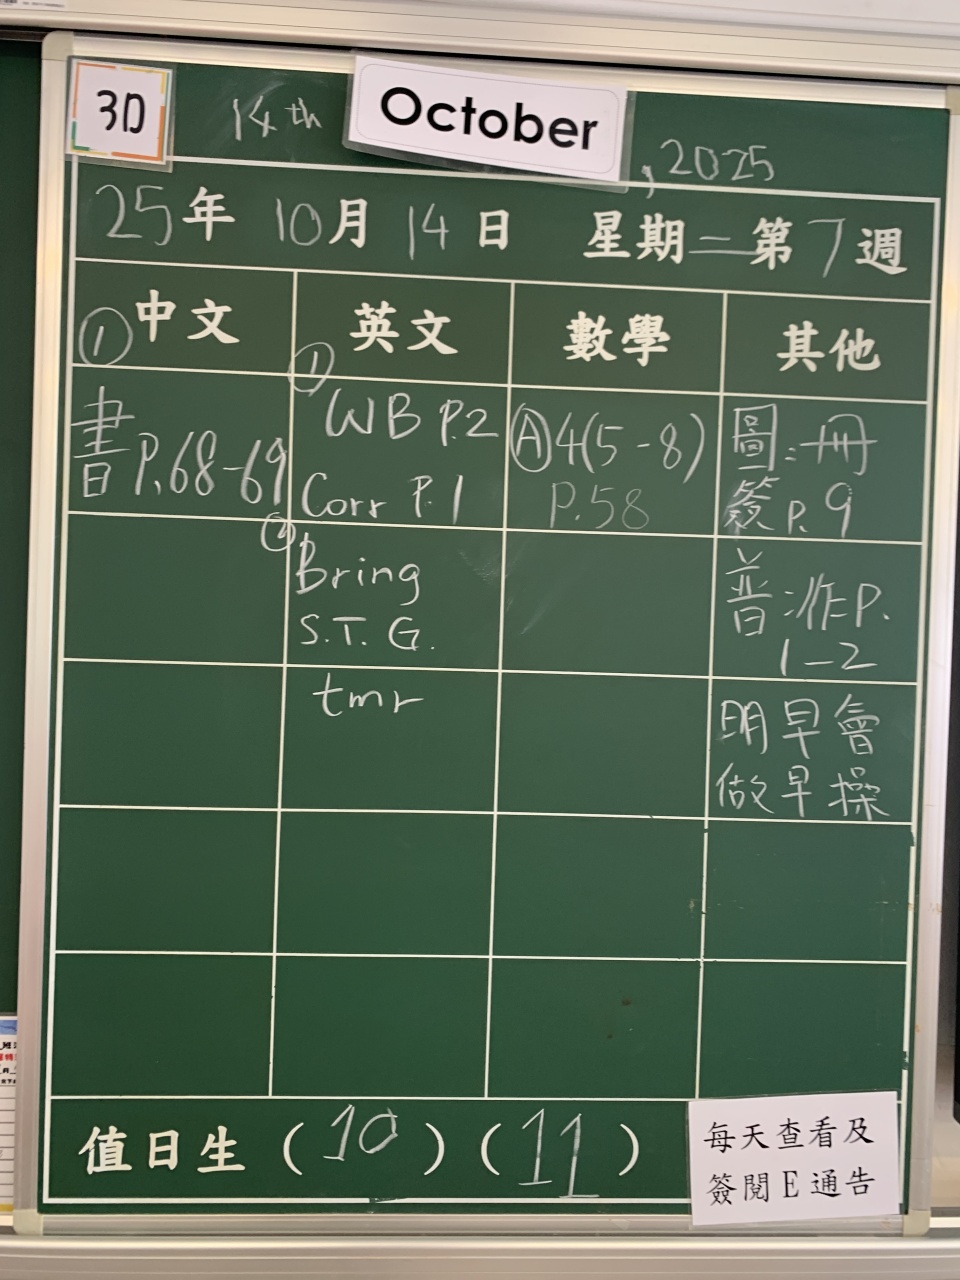 3D
14th October, 2025
25年 10月 14日 星期二 第7週
① 中文
① 英文
數學
其他
書 P.68-69
WB P.2
Corr P.1
② Bring
S.T.G.
tmr
Ⓐ4(5-8)
P.58
圖:冊
簽 P.9
普:作P.
1-2
明早會
做早操
值日生 (10) (11)
每天查看及
簽閱E通告